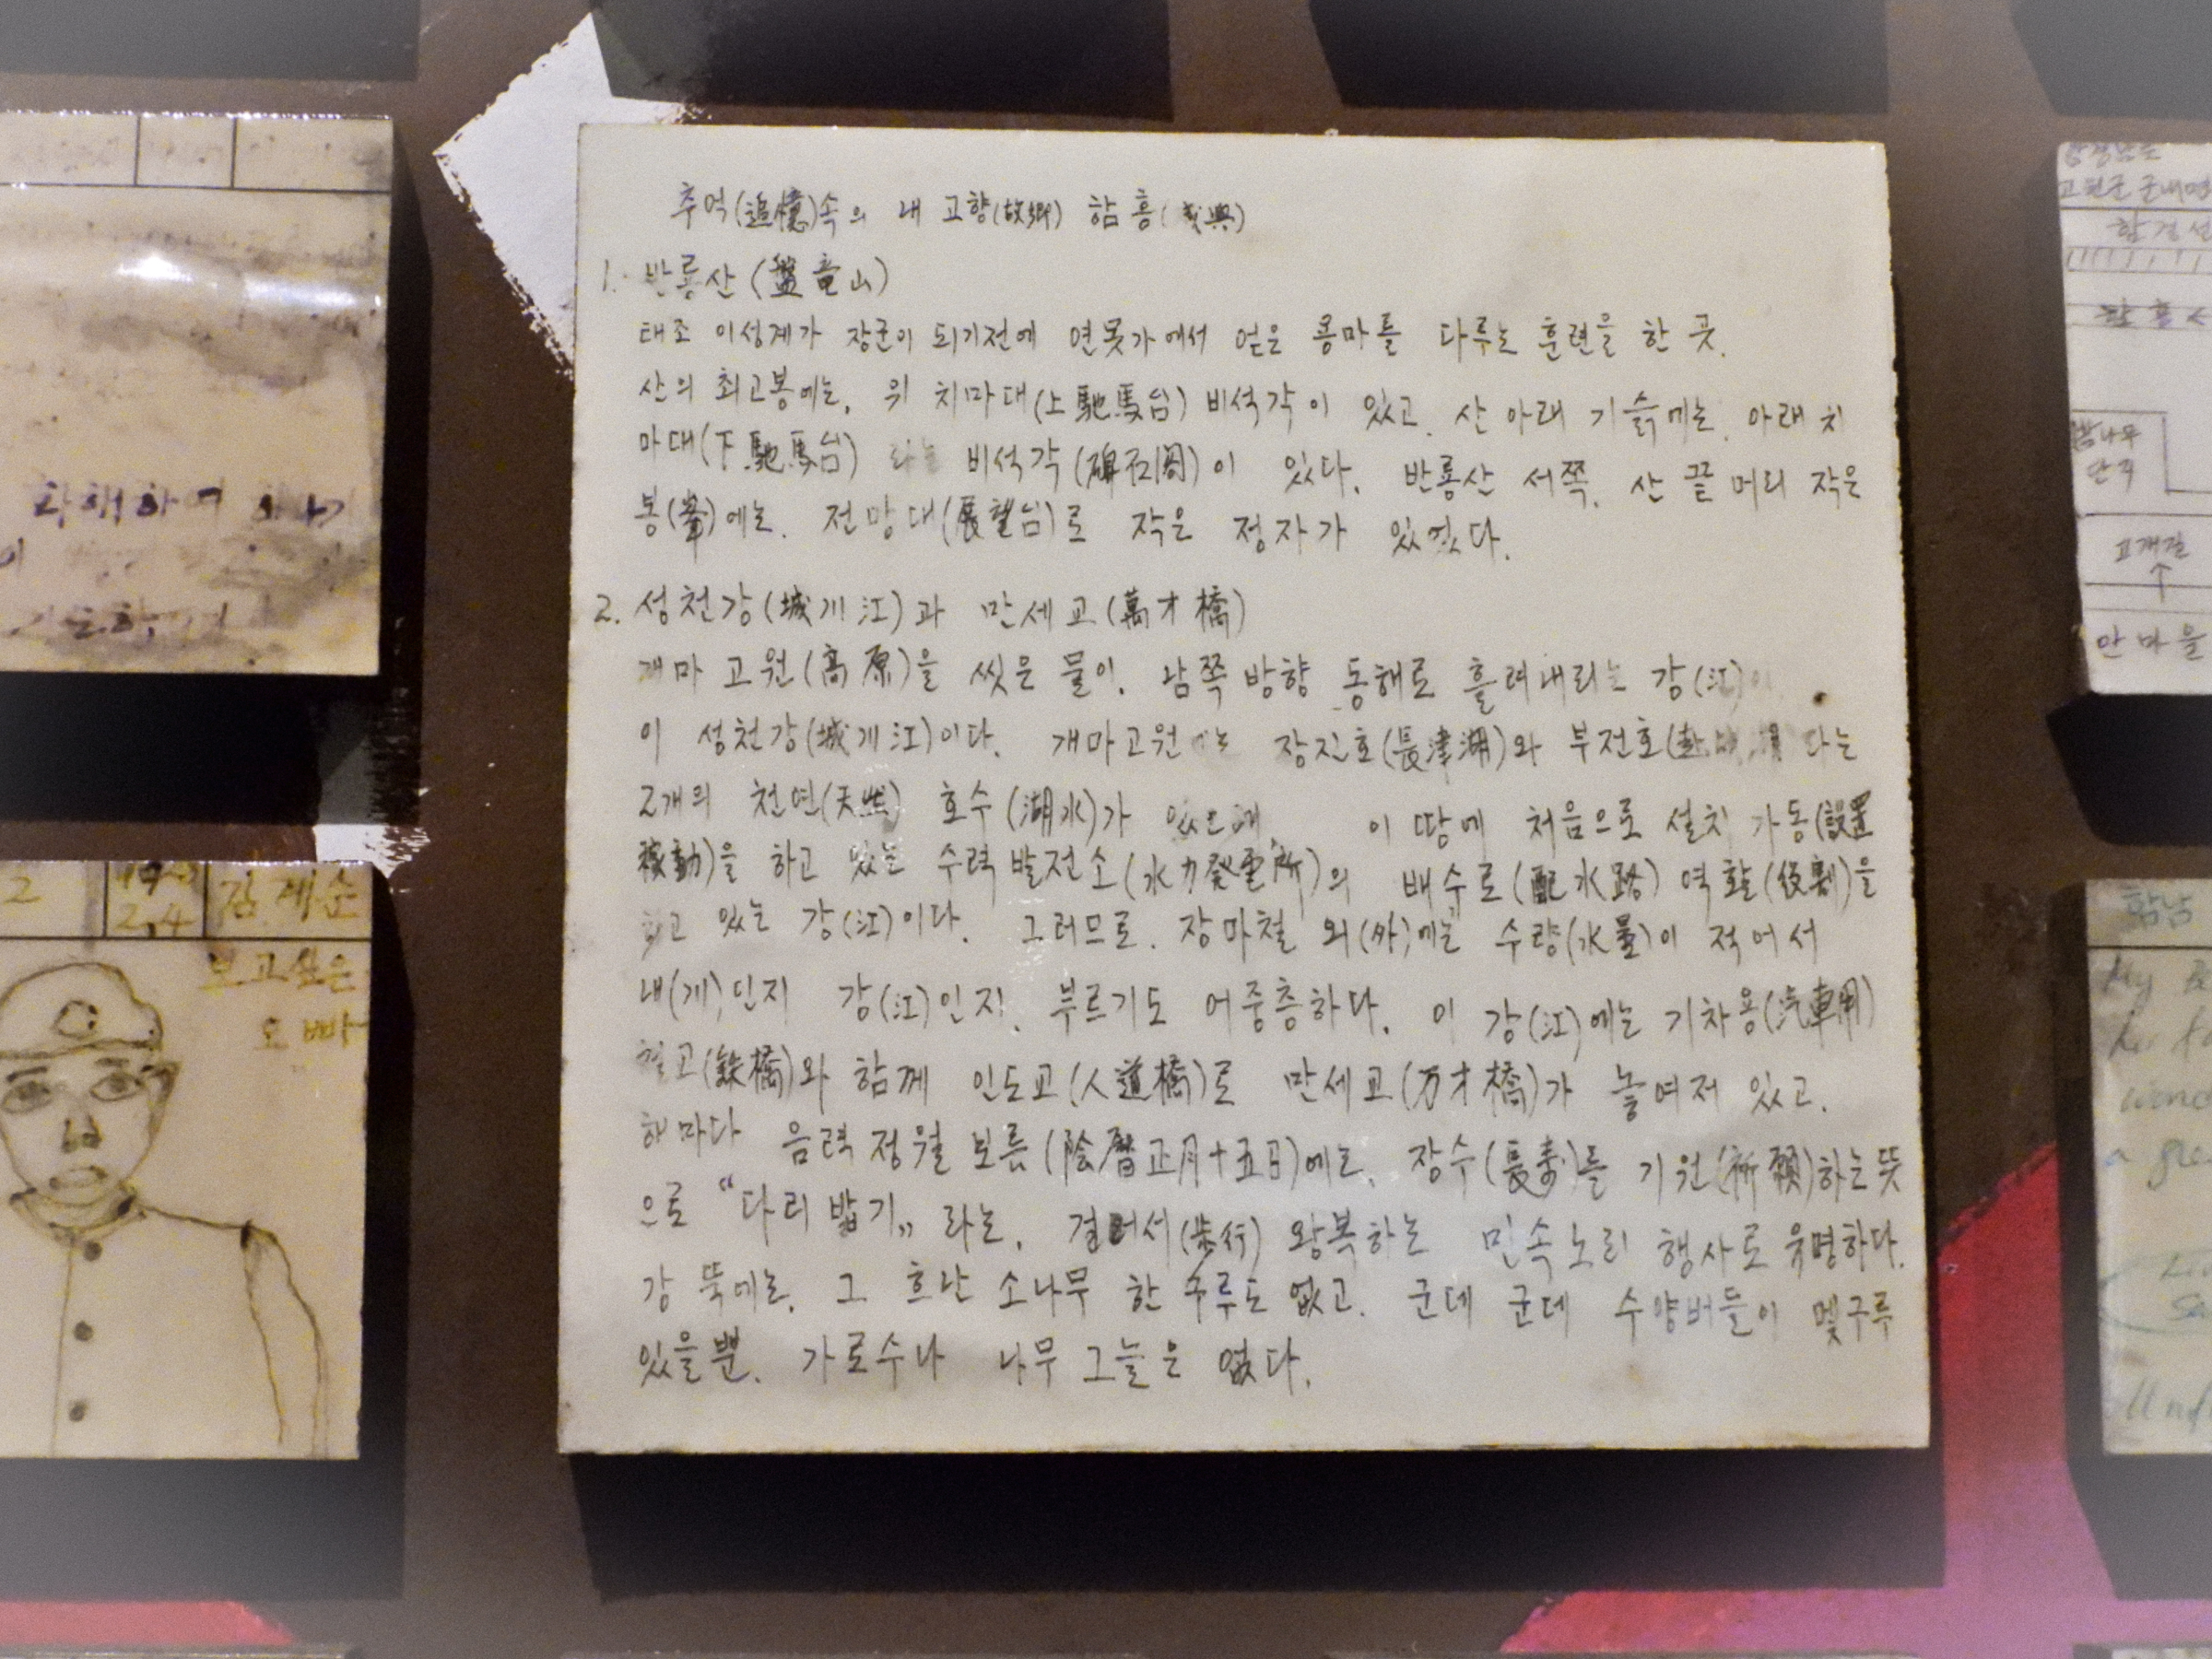 추억(追憶)속의 내 고향(故鄕) 함흥(咸興)
1. 반룡산(盤竜山)
태조 이성계가 장군이 되기전에 연못가에서 얻은 용마를 다루는 훈련을 한 곳.
산의 최고봉에는, 위 치마대(上馳馬台) 비석각이 있고, 산 아래 기슭에는, 아래 치
마대(下馳馬台) 라는 비석각(碑石閣)이 있다. 반룡산 서쪽, 산 끝머리 작은
봉(峯)에는, 전망대(展望台)로 작은 정자가 있었다.
2. 성천강(城川江)과 만세교(萬才橋)
개마 고원(高原)을 씻은 물이, 남쪽 방향 동해로 흘러내리는 강(江)이
이 성천강(城川江)이다. 개마고원에는 장진호(長津湖)와 부전호 다는
2개의 천연(天然) 호수(湖水)가 있는데 이 땅에 처음으로 설치 가동(設置
稼動)을 하고 있는 수력발전소(水力発電所)의 배수로(配水路) 역활(役割)을
하고 있는 강(江)이다. 그러므로, 장마철 외(外)에는 수량(水量)이 적어서
내(川)인지 강(江)인지, 부르기도 어중층하다. 이 강(江)에는 기차용(汽車用)
철교(鉄橋)와 함께 인도교(人道橋)로 만세교(万才橋)가 놓여저 있고,
해마다 음력 정월 보름(陰暦正月十五日)에는, 장수(長寿)를 기원(祈願)하는 뜻
으로 "다리 밟기" 라는, 걸어서(歩行) 왕복하는 민속노리 행사로 유명하다.
강 뚝에는, 그 흐난 소나무 한 구루도 없고, 군데 군데 수양버들이 몇구루
있을뿐, 가로수나 나무 그늘은 없다.
2
김제순
보고싶은
오빠
고원군 군내면
함경선
고개길
↑
안마을
함남
My